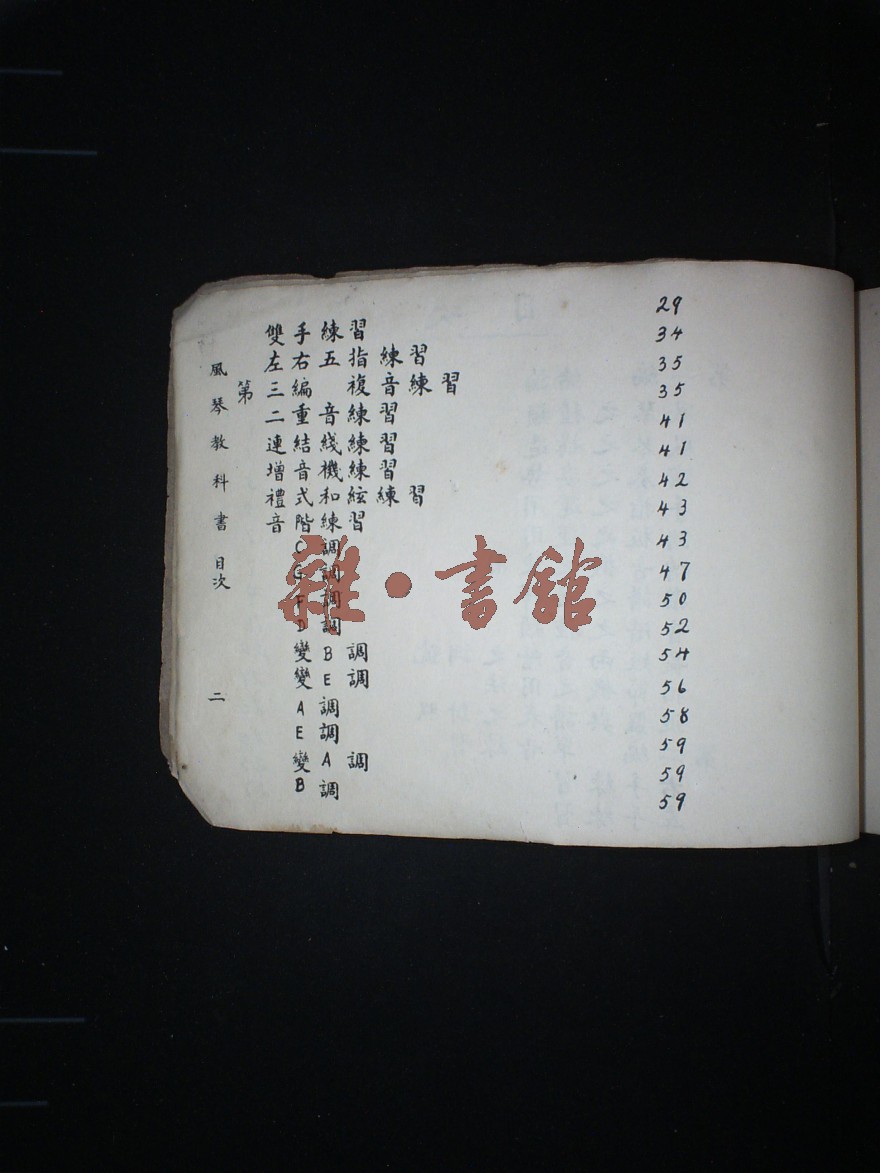 雙手練習 29
左右五指練習 34
第三編 複音練習 35
二重音練習 35
連結綫練習 41
增音機練習 41
禮式和絃練習 42
音階練習 43
C調 43
G調 47
F調 50
D調 52
變B調 54
變E調 56
A調 58
E調 59
變A調 59
B調 59
風琴教科書 目次 二
雜·書館